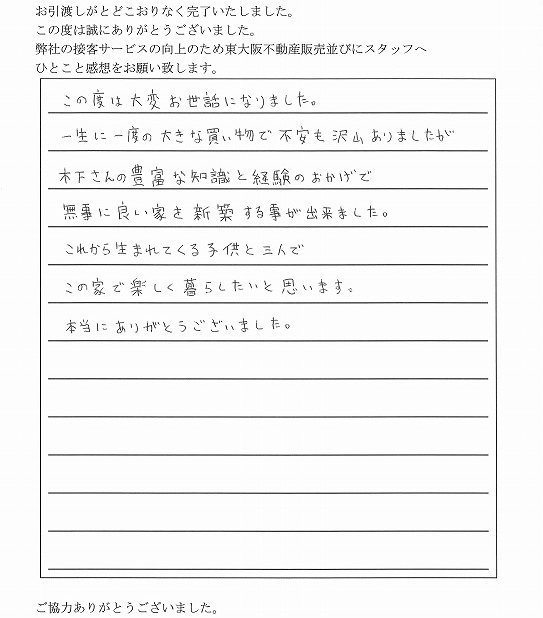 お引渡しがとどこおりなく完了いたしました。
この度は誠にありがとうございました。
弊社の接客サービスの向上のため東大阪不動産販売並びにスタッフへ
ひとこと感想をお願い致します。
この度は大変お世話になりました。
一生に一度の大きな買い物で不安も沢山ありましたが
木下さんの豊富な知識と経験のおかげで
無事に良い家を新築する事が出来ました。
これから生まれてくる子供と三人で
この家で楽しく暮らしたいと思います。
本当にありがとうございました。
ご協力ありがとうございました。